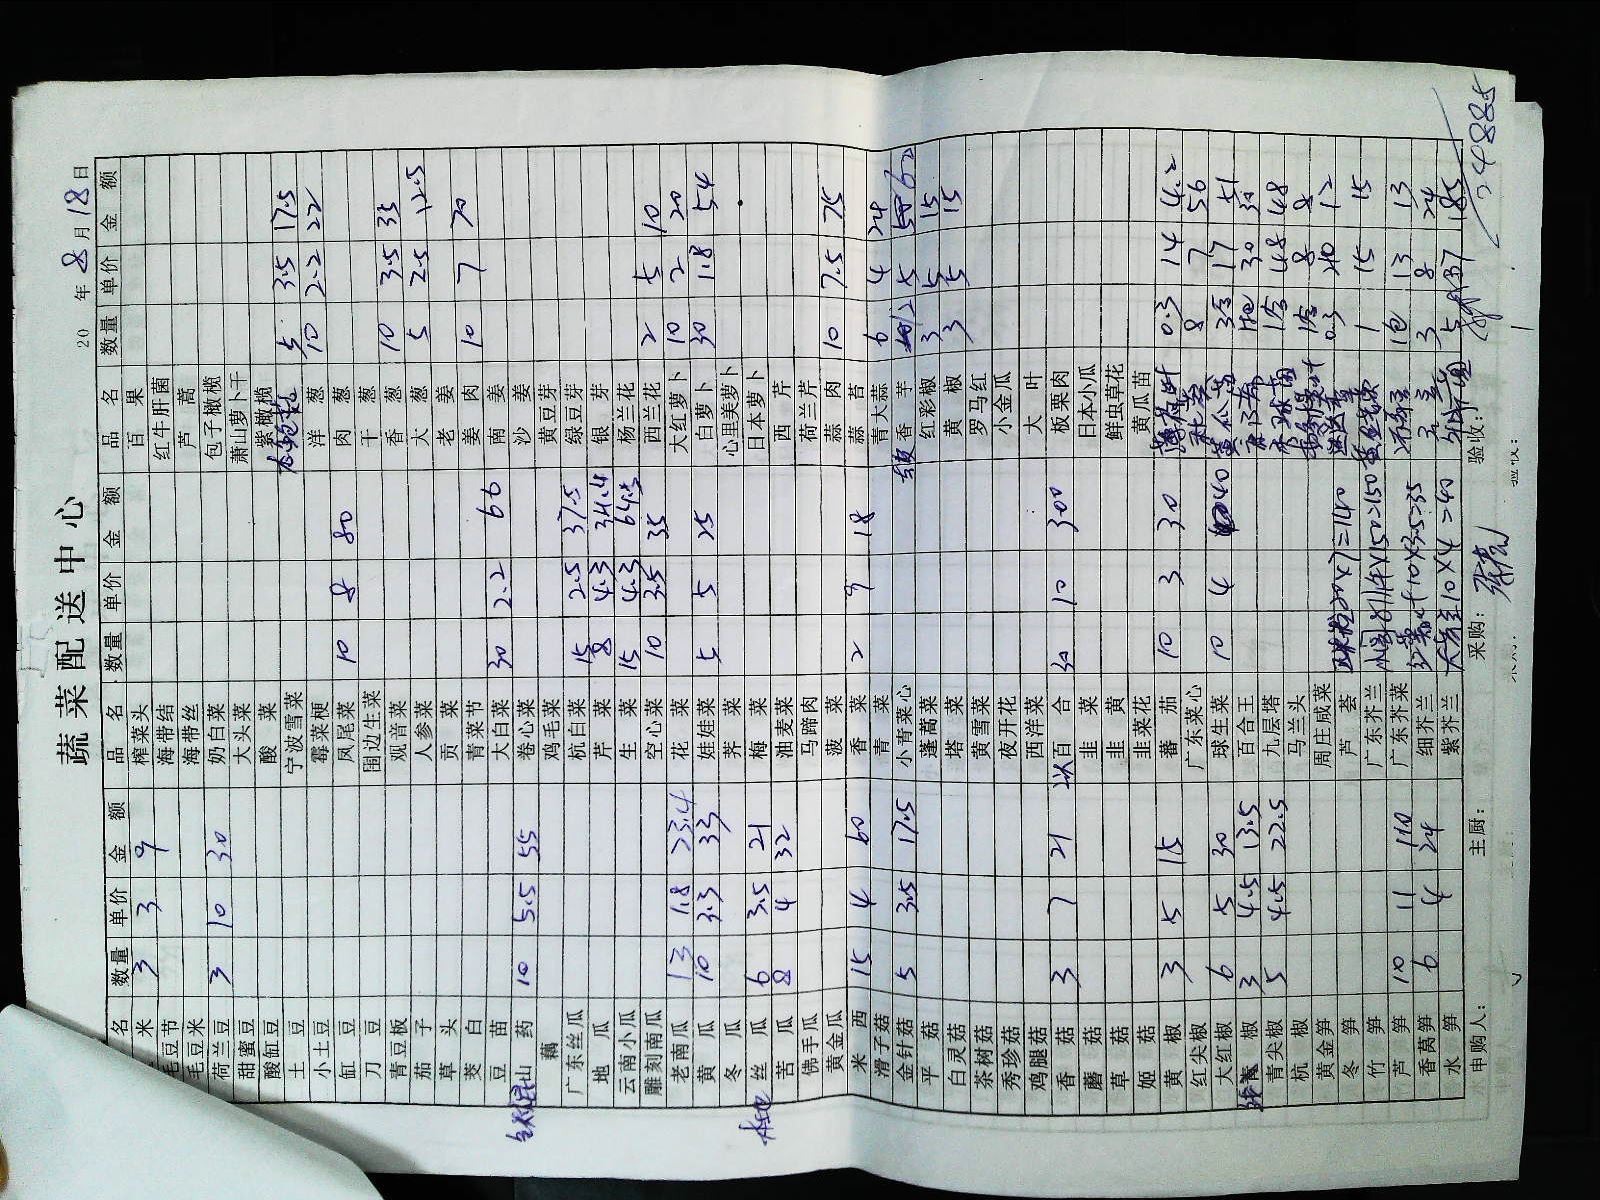 蔬菜配送中心
20 年 8 月 18 日
名 数量 单价 金额 品名 数量 单价 金额 品名 数量 单价 金额
米 3 3 9 榨菜头 百果
毛豆节 海带结 红牛肝菌
毛豆米 海带丝 芦蒿
荷兰豆 3 10 30 奶白菜 包子橄榄
甜蜜豆 大头菜 萧山萝卜干
酸缸豆 酸菜 紫橄榄
土豆 宁波雪菜 5 3.5 17.5
小土豆 霉菜梗 洋葱 10 2.2 22
缸豆 凤尾菜 10 8 80 肉葱
刀豆 围边生菜 干葱
青豆板 观音菜 香葱 10 3.5 35
茄子 人参菜 大葱 5 2.5 12.5
草头 贡菜 老姜
茭白 青菜节 姜肉 10 7 70
豆苗 大白菜 30 2.2 66 南姜
山药 10 5.5 55 卷心菜 沙姜
藕 鸡毛菜 黄豆芽
广东丝瓜 杭白菜 15 2.5 37.5 绿豆芽
地瓜 芹菜 8 4.3 34.4 银芽
云南小瓜 生菜 15 4.3 64.5 杨兰花
雕刻南瓜 空心菜 10 3.5 35 西兰花 2 5 10
老南瓜 13 1.8 23.4 花菜 大红萝卜 10 2 20
黄瓜 10 3.3 33 娃娃菜 5 5 25 白萝卜 30 1.8 54
冬瓜 荠菜 心里美萝卜
本地 丝瓜 6 3.5 21 梅菜 日本萝卜
苦瓜 8 4 32 油麦菜 西芹
佛手瓜 马蹄肉 荷兰芹
黄金瓜 菠菜 蒜肉 10 7.5 75
米西 15 4 60 香菜 2 9 18 蒜苔
滑子菇 青菜 青大蒜 6 4 24
金针菇 5 3.5 17.5 小青菜心 香芋 12 5
平菇 蓬蒿菜 红彩椒 3 5 15
白灵菇 塔菜 黄椒 3 5 15
茶树菇 黄雪菜 罗马红
秀珍菇 夜开花 小金瓜
鸡腿菇 西洋菜 大叶
香菇 3 7 21 百合 30 10 300 板栗肉
蘑菇 韭菜 日本小瓜
草菇 韭黄 鲜虫草花
姬菇 韭菜花 黄瓜苗
黄椒 3 5 15 蕃茄 10 3 30 薄荷叶 0.3 14 4.2
红尖椒 广东菜心 8 7 56
大红椒 6 5 30 球生菜 10 4 40 17 51
椒 3 4.5 13.5 百合王 30 30
青尖椒 5 4.5 22.5 九层塔 48 48
杭椒 马兰头 8 8
黄金笋 周庄咸菜 20×7=140 0.3 40 12
冬笋 芦荟
竹笋 广东芥兰 1 15 15
芦笋 10 11 110 广东芥菜 10×3.5=35 1包 13 13
香莴笋 6 4 24 细芥兰 3 8 24
水笋 紫芥兰 10×4=40 5 37 185
申购人： 主厨： 采购： 验收：
2488.5